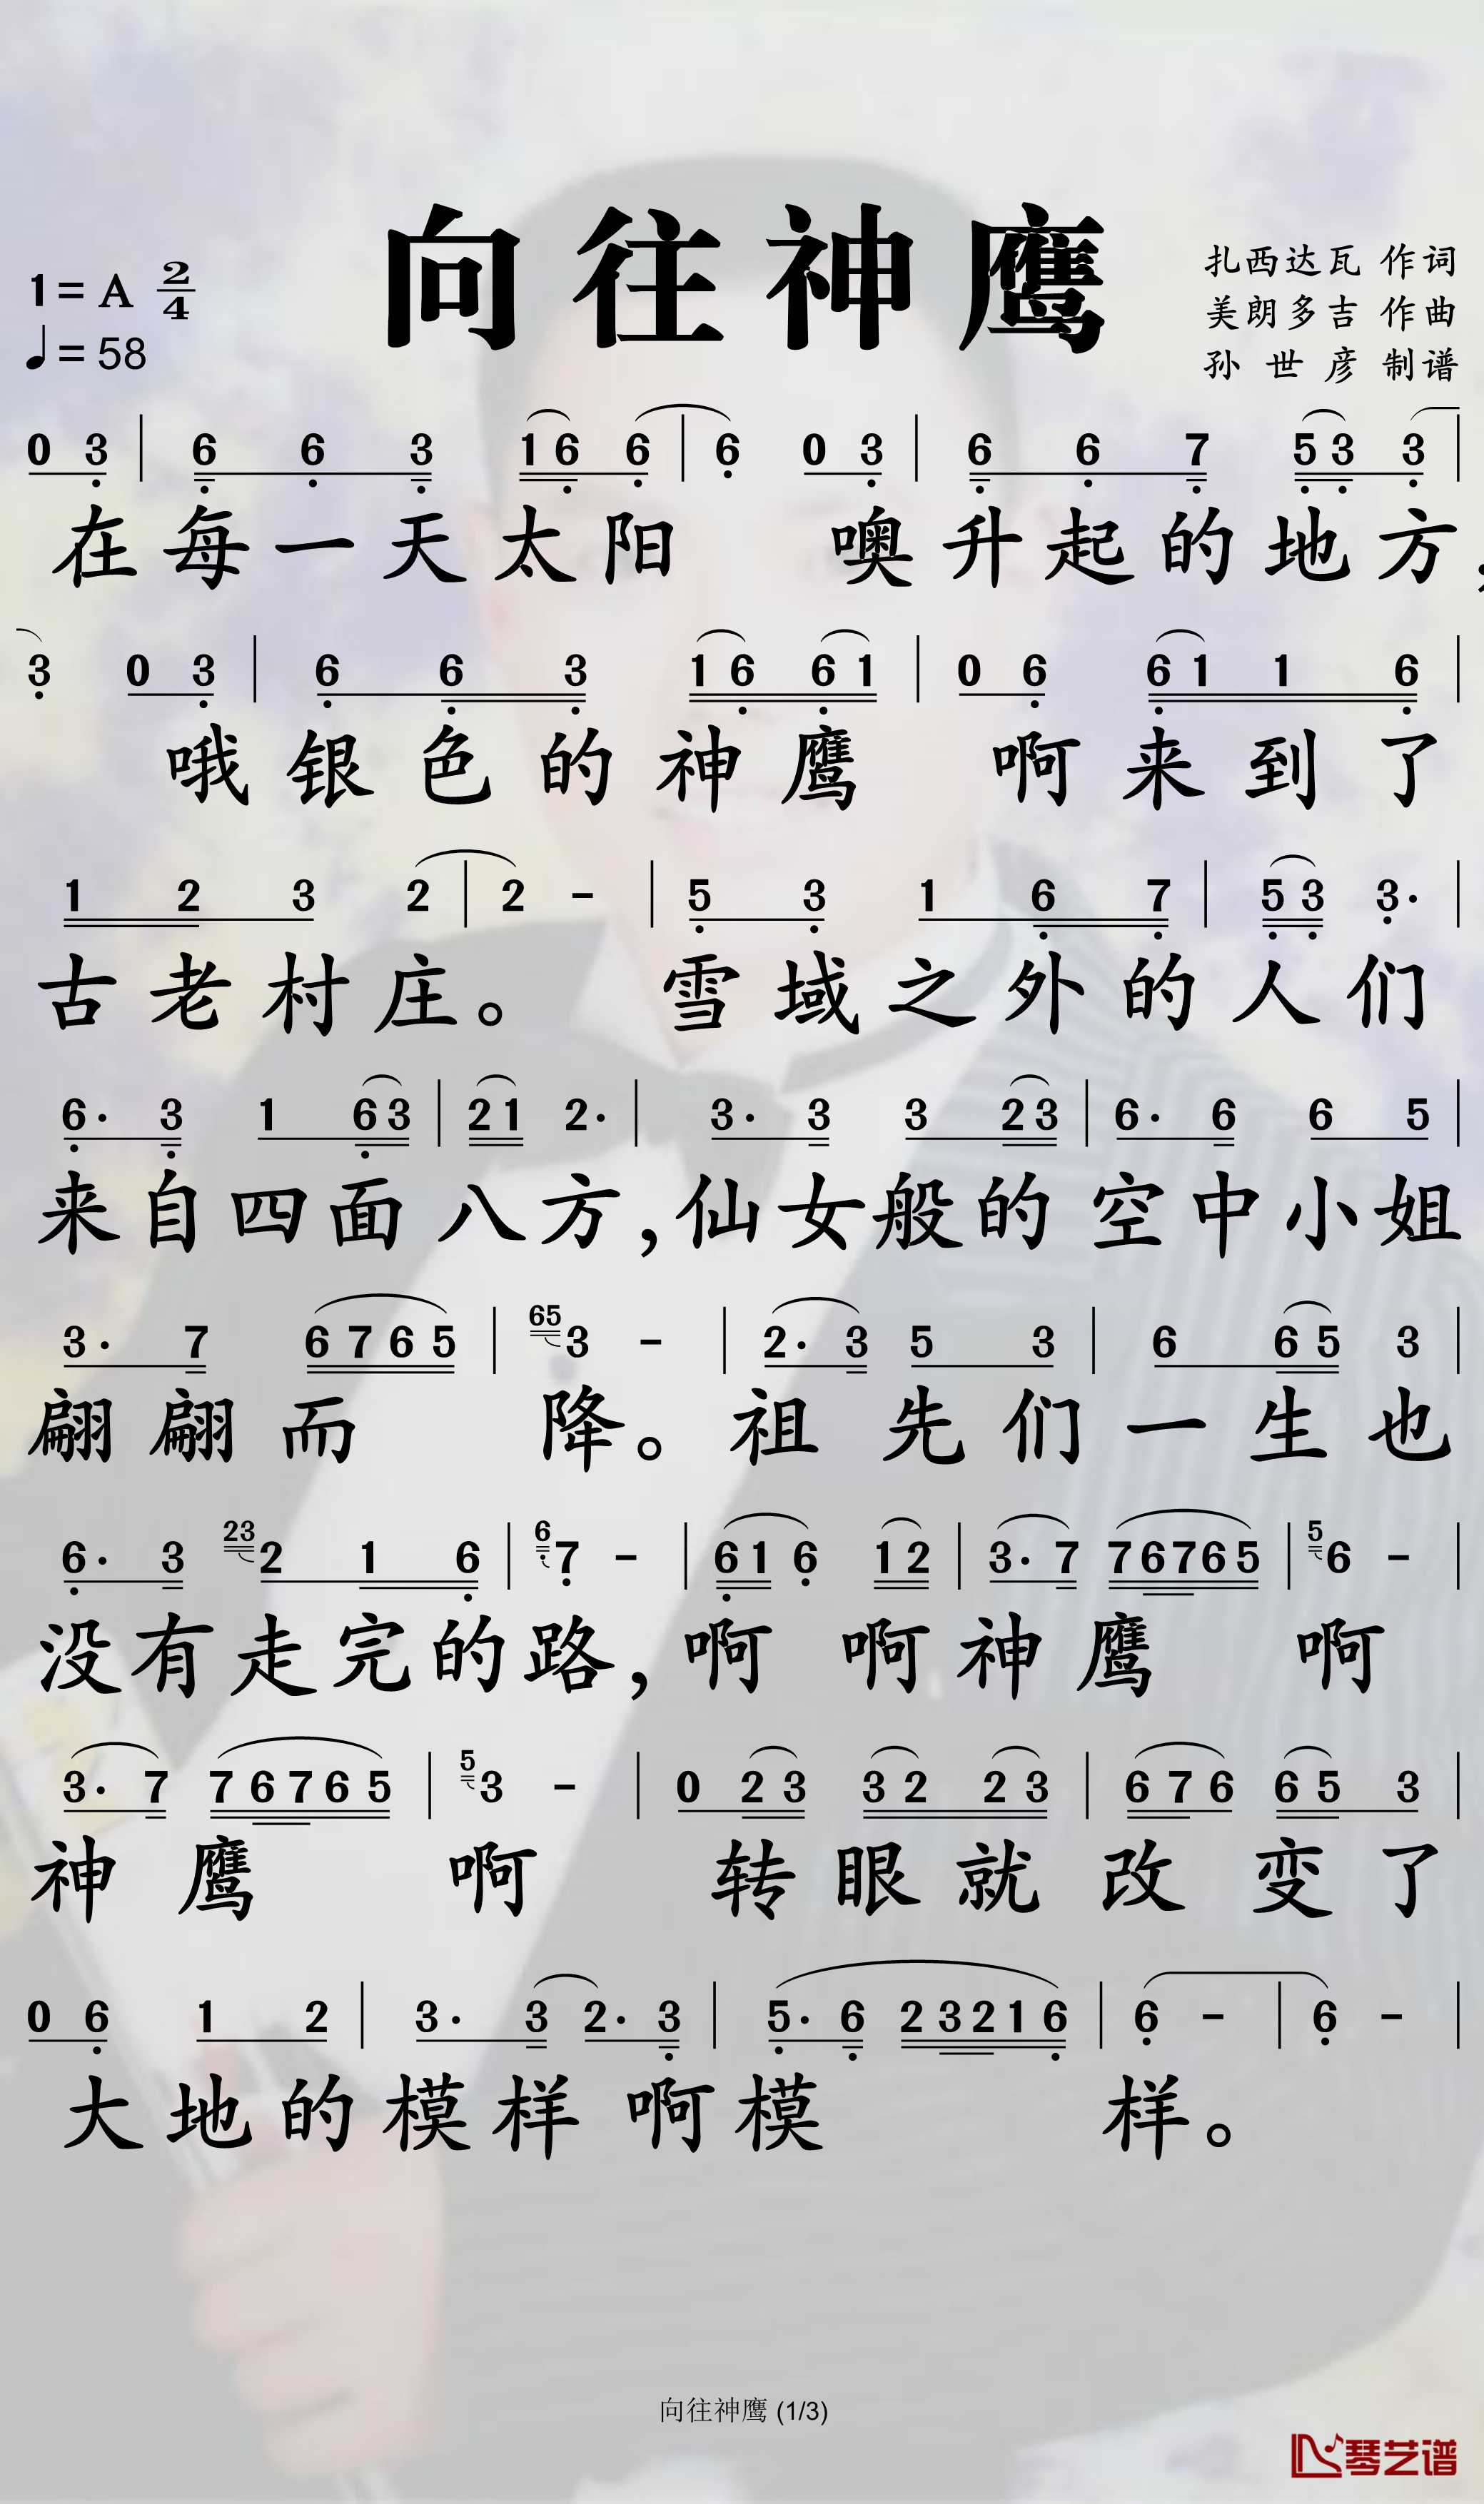 向往神鹰
1=A 2/4
♩=58
扎西达瓦 作词
美朗多吉 作曲
孙世彦 制谱
0 3 | 6 6 3 1 6 6 | 6 0 3 | 6 6 7 5 3 3 |
在每一天太阳 噢升起的地方,
3 0 3 | 6 6 3 1 6 6 1 | 0 6 6 1 1 6 |
哦银色的神鹰 啊来到了
1 2 3 2 | 2 - | 5 3 1 6 7 | 5 3 3· |
古老村庄。 雪域之外的人们
6· 3 1 6 3 | 2 1 2· | 3· 3 3 2 3 | 6· 6 6 5 |
来自四面八方,仙女般的空中小姐
3· 7 6 7 6 5 | 65 3 - | 2· 3 5 3 | 6 6 5 3 |
翩翩而 降。祖先们一生也
6· 3 23 2 1 6 | 6 7 - | 6 1 6 1 2 | 3· 7 7 6 7 6 5 | 5 6 - |
没有走完的路,啊 啊神鹰 啊
3· 7 7 6 7 6 5 | 5 3 - | 0 2 3 3 2 2 3 | 6 7 6 6 5 3 |
神鹰 啊 转眼就改变了
0 6 1 2 | 3· 3 2· 3 | 5· 6 2 3 2 1 6 | 6 - | 6 - |
大地的模样 啊模 样。
向往神鹰 (1/3)
琴艺谱